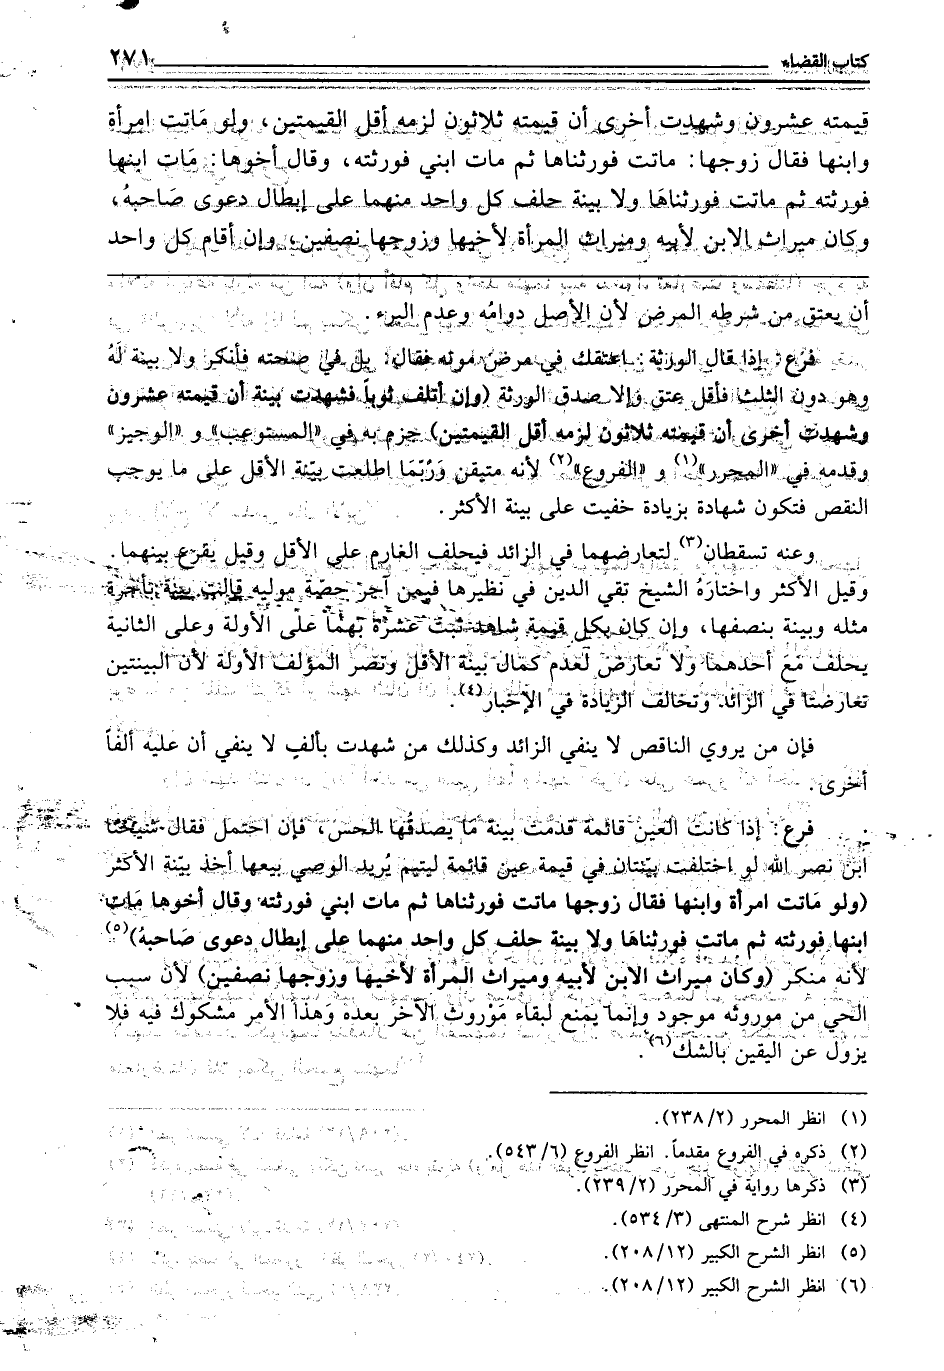 كتاب القضاء ٢٧١
قيمته عشرون وشهدت أخرى أن قيمته ثلاثون لزمه أقل القيمتين، ولو مَاتت امرأة
وابنها فقال زوجها: ماتت فورثناها ثم مات ابني فورثته، وقال أخوها: مَات ابنها
فورثته ثم ماتت فورثناهَا ولا بينة حلف كل واحد منهما على إبطال دعوى صَاحبهُ،
وكان ميراث الابن لأبيه وميراث المرأة لأخيها وزوجها نصفين، وإن أقام كل واحد
أن يعتق من شرطه المرض لأن الأصل دوامُه وعدم البرء.
فرع: إذا قال الورثة: اعتقك في مرض موته فقال: بل في صحته فأنكر ولا بينة لَهُ
وهو دون الثلث فأقل عتق وإلا صدق الورثة (وإن أتلف ثوباً فشهدت بينة أن قيمته عشرون
وشهدت أخرى أن قيمته ثلاثون لزمه أقل القيمتين) جزم به في «المستوعب» و «الوجيز»
وقدمه في «المحرر»(١) و «الفروع»(٢) لأنه متيقن وَرُبّمَا اطلعت بيّنة الأقل على ما يوجب
النقص فتكون شهادة بزيادة خفيت على بينة الأكثر.
وعنه تسقطان(٣) لتعارضهما في الزائد فيحلف الغارم على الأقل وقيل يقرع بينهما.
وقيل الأكثر واختارَهُ الشيخ تقي الدين في نظيرها فيمن آجر حصّة موليه قالت بينة بأجرة
مثله وبينة بنصفها، وإن كان بكل قيمة شاهد ثبت عشرة بهما على الأولة وعلى الثانية
يحلف مَعَ أحدهما ولا تعارض لعدم كمال بينة الأقل ونصر المؤلف الأولة لأن البينتين
تعارضتا في الزائد وتخالف الزيادة في الإخبار(٤).
فإن من يروي الناقص لا ينفي الزائد وكذلك من شهدت بألفٍ لا ينفي أن عليه ألفاً
أخرى.
فرع: إذا كانت العين قائمة قدمت بينة مَا يصدقُها الحس، فإن احتمل فقال شيخنا
ابن نصر الله لو اختلفت بيّنتان في قيمة عين قائمة ليتيم يُريد الوصي بيعها أخذ بيّنة الأكثر
(ولو مَاتت امرأة وابنها فقال زوجها ماتت فورثناها ثم مات ابني فورثته وقال أخوها مَات
ابنها فورثته ثم ماتت فورثناهَا ولا بينة حلف كل واحد منهما على إبطال دعوى صَاحبهُ)(٥)
لأنه منكر (وكان ميراث الابن لأبيه وميراث المرأة لأخيها وزوجها نصفين) لأن سبب
الحي من موروثه موجود وإنما يمنع لبقاء مَوْروث الآخر بعده وَهذا الأمر مشكوك فيه فلا
يزول عن اليقين بالشك(٦).
(١) انظر المحرر (٢٣٨/٢).
(٢) ذكره في الفروع مقدماً. انظر الفروع (٥٤٣/٦).
(٣) ذكرها رواية في المحرر (٢٣٩/٢).
(٤) انظر شرح المنتهى (٥٣٤/٣).
(٥) انظر الشرح الكبير (٢٠٨/١٢).
(٦) انظر الشرح الكبير (٢٠٨/١٢).